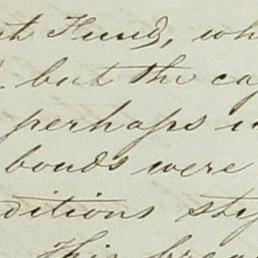 t Fund, wh
but the ca
perhaps
bonds were
ditions sti
This brea